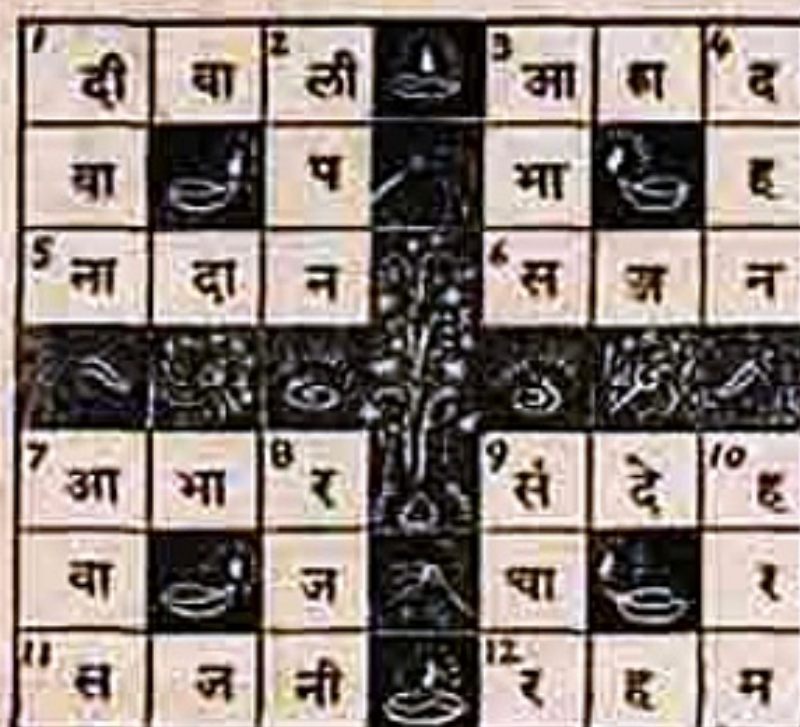 1 दी वा 2 ली 3 आ ह्ला 4 द
वा प भा ह
5 ना दा न 6 स ज न
7 आ भा 8 र 9 सं दे 10 ह
वा ज चा र
11 स ज नी 12 र ह म